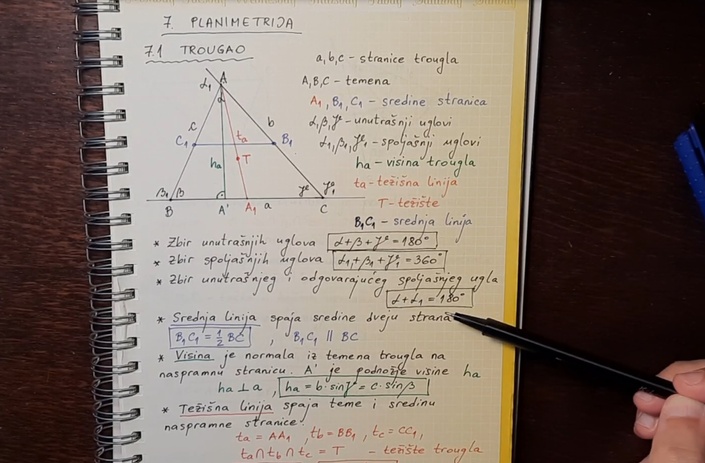 7. PLANIMETRIJA
7.1 TROUGAO
a, b, c - stranice trougla
A, B, C - temena
A₁, B₁, C₁ - sredine stranica
α, β, γ - unutrašnji uglovi
α₁, β₁, γ₁ - spoljašnji uglovi
ha - visina trougla
ta - težišna linija
T - težište
B₁C₁ - srednja linija
A
α₁
α
c
b
C₁
B₁
ta
T
ha
β₁
β
γ
γ₁
B
A'
A₁
a
C
* Zbir unutrašnjih uglova α+β+γ = 180°
* Zbir spoljašnjih uglova α₁+β₁+γ₁ = 360°
* Zbir unutrašnjeg i odgovarajućeg spoljašnjeg ugla
α+α₁ = 180°
* Srednja linija spaja sredine dveju strana
B₁C₁ = 1/2 BC , B₁C₁ || BC
* Visina je normala iz temena trougla na
naspramnu stranicu. A' je podnožje visine ha
ha ⊥ a , ha = b·sinγ = c·sinβ
* Težišna linija spaja teme i sredinu
naspramne stranice.
ta = AA₁ , tb = BB₁ , tc = CC₁ ,
ta ∩ tb ∩ tc = T - težište trougla